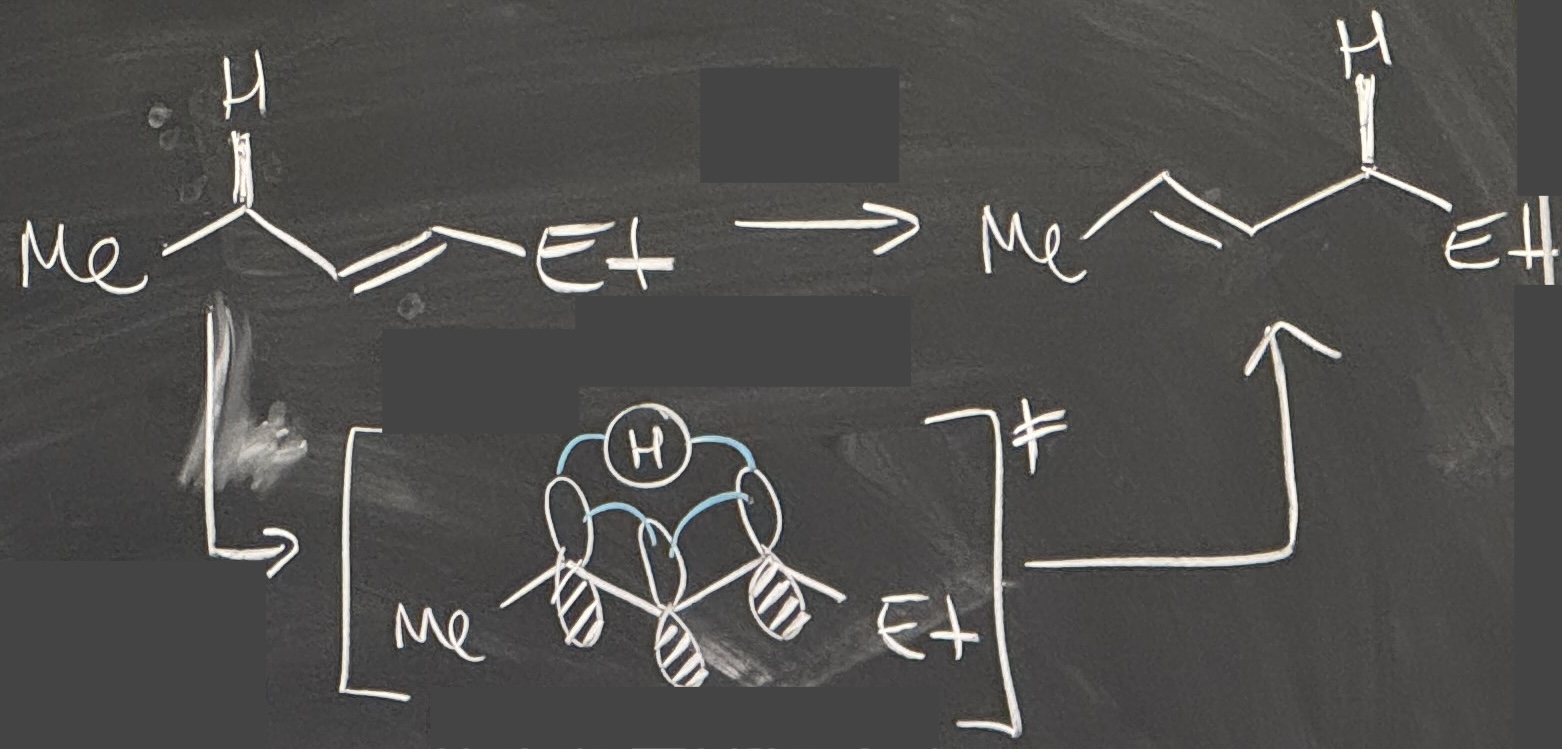 H
H
Me
Et
Me
Et
H
‡
Me
Et